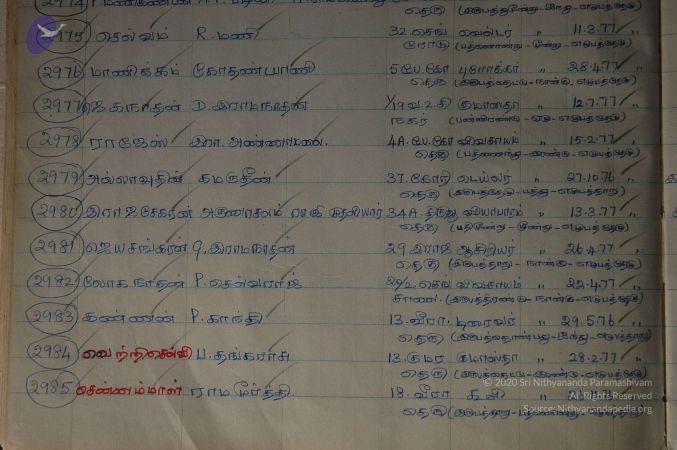 2975 செல்வம் R. மணி 32. செங் வெல்டர் " 11.3.77 "
ரோடு (பதினொன்று-மூன்று-எழுபத்தேழு)
2976 மாணிக்கம் கோதண்டபாணி 5 பே.கோ புரோக்கர் " 28.4.77 "
தெரு (இருபத்தெட்டு-நான்கு-எழுபத்தேழு)
2977 ஜெகநாதன் D. இராமநாதன் 1/19 வ.உ.சி குமாஸ்தா " 12.7.77 "
நகர் (பன்னிரண்டு-ஏழு-எழுபத்தேழு)
2978 ராஜேஸ் இரா. அண்ணாமலை. 4A. பே.கோ விவசாயம் " 15.2.77 "
தெரு (பதினைந்து-இரண்டு-எழுபத்தேழு)
2979 அல்லாவுதீன் கமருதீன் 37. கோரி டெய்லர் " 27.10.76 "
தெரு (இருபத்தேழு-பத்து-எழுபத்தாறு)
2980 இராஜசேகரன் அருணாசலம் முதலியார் 34A. திருவூ வியாபாரம் " 13.3.77 "
தெரு (பதிமூன்று-மூன்று-எழுபத்தேழு)
2981 ஜெயசங்கரன் G. இராமநாதன் 29 இராஜ ஆசிரியர் " 26.4.77 "
தெரு (இருபத்தாறு-நான்கு-எழுபத்தேழு)
2982 லோகநாதன் P. செல்வராஜ் செங் விவசாயம் " 22.4.77 "
சாலை. (இருபத்திரண்டு-நான்கு-எழுபத்தேழு)
2983 கண்ணன் P. காந்தி 13. வீரா. டிரைவர் " 29.5.76 "
தெரு (இருபத்தொன்பது-ஐந்து-எழுபத்தாறு)
2984 வெற்றிசெல்வி ப. தங்கராசு 13. குமர குமாஸ்தா " 28.2.77 "
தெரு (இருபத்தெட்டு-இரண்டு-எழுபத்தேழு)
2985 சென்னம்மாள் ராமமூர்த்தி 18. வீரா கூலி "
தெரு
© 2020 Sri Nithyananda Paramashivam
All Rights Reserved
Source: Nithyanandapedia.org